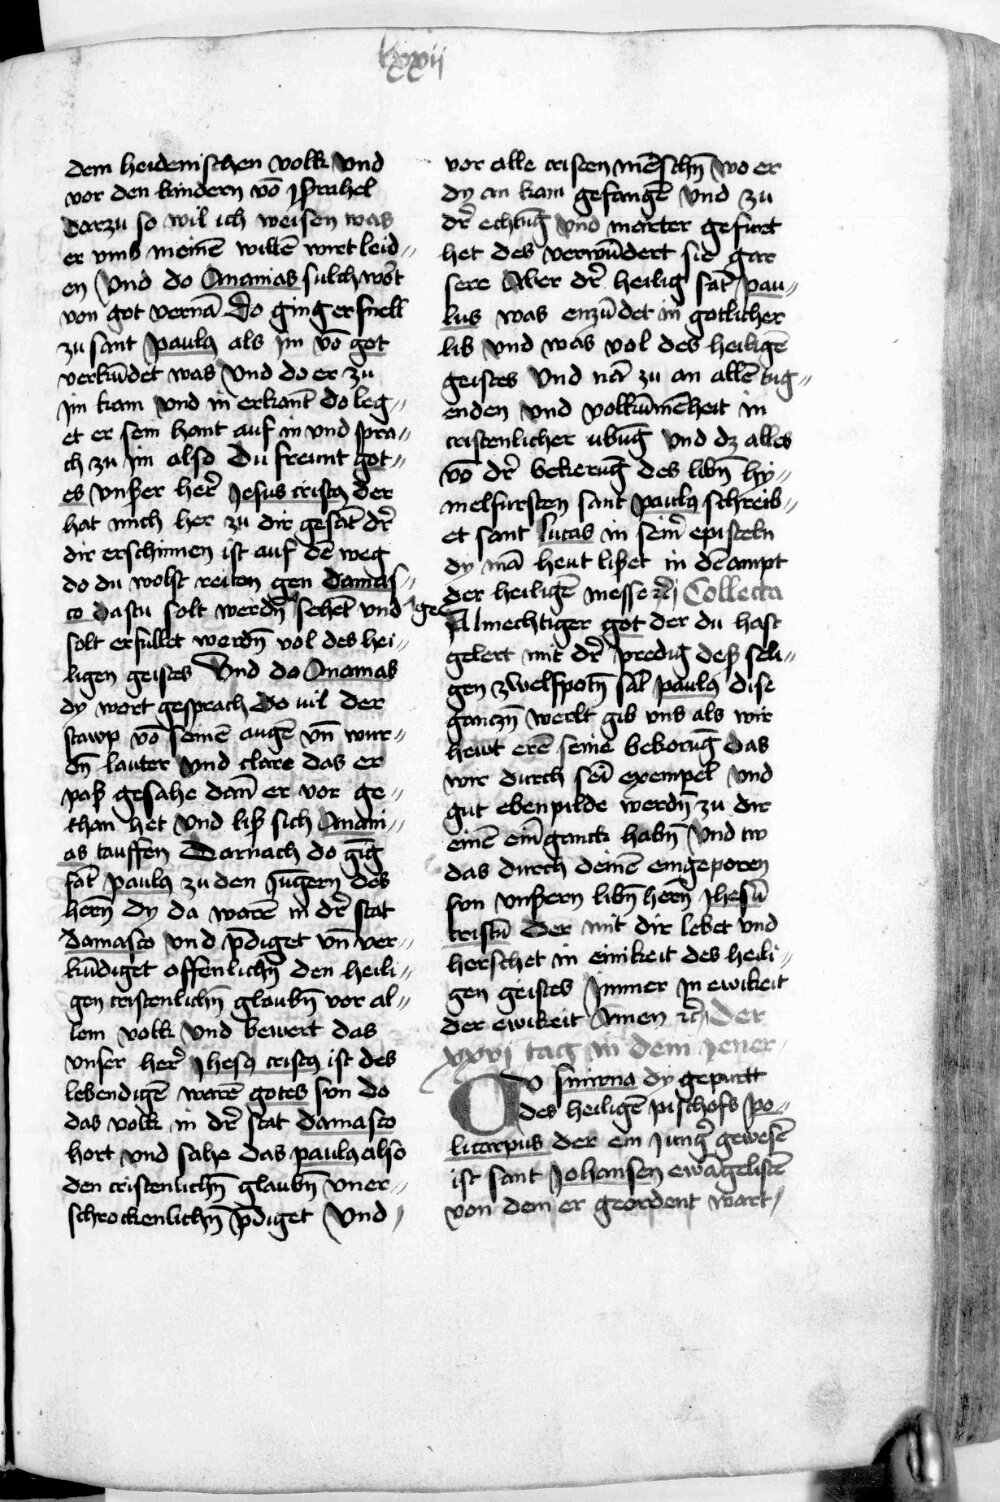 lxxxij
dem heidenischen volk und
vor den kindern vō jsrahel
Darzu so wil ich weisen was
er vmb meinē willē wirt leid„
en Und do Ananias sulch wort
von got vernā Do ging er snell
zu sant paulꝯ als jm vō got
verkūdet was Und do er zu
jm kam und in erkant do leg„
et er sein hant auf in und spra„
ch zu jm also Du freunt got„
es vnßer her̄ Jesus cristꝯ der
hat mich her zu dir gesāt dr̄
dir erschinnen ist auf dē weg
do du wolst reiten gen damas„
co Dastu solt werdn̄ sehēt und
solt erfullet werdn̄ vol des hei„
ligen geistes Und do Ananias
dy wort gesprach Do uil der
stawp vō seinē augē vn̄ wur„
dn̄ lauter und clare das er
paß gesahe dan̄ er vor ge„
than het Und liß sich Anani„
as tauffen Darnach do gīg
sāt paulꝯ zu den jūgern des
hern̄ dy da warē in dr̄ stat
damasco und p̄diget vn̄ ver„
kūdiget offenlichn̄ den heili„
gen cristenlichn̄ glaubn̄ vor al„
lem volk Und bewert das
unser her̄ Jhesꝯ cristꝯ ist des
lebendigē warē gotes sun do
das volk in dr̄ stat damasco
hort und sahe das paulꝯ also
den cristenlichn̄ glaubn̄ vner„
schrockenlichn̄ p̄diget Und
vor alle cristen mēschn̄ wo er
dy an kam gefangē und zu
dr̄ echtūg und marter gefurt
het des verwūdert sie gar
sere Aber dr̄ heilig sāt pau„
lus was enzūdet in gotlicher
lib Und was vol des heiligē
geistes Und nā zu an allē tug„
enden und volkūmēheit in
cristenlicher ubūg Und dz alles
vō dr̄ bekerūg des libn̄ hy„
melfursten sant paulꝯ schreib„
et sant lucas in seiner episteln
dy mā heut lißet in dē ampt
der heiligē messe ꝛc̄ Collecta
Almechtiger got der du hast
gelert mit dr̄ predig deß seli„
gen zwelfpotn̄ sāt paulꝯ dise
ganczn̄ werlt gib vns als wir
hewt erē seine bekorūg Das
wir durch sein exempel und
gut ebenpilde werdn̄ zu dir
einē ein̄ganck habn̄ Und tw
das durch deinē eingeporen
sun vnßern libn̄ hern̄ Jhesū
cristū Der mit dir lebet und
herschet in einikeit des heili„
gen geistes jmmer jn ewikeit
der ewikeit Amen ꝛc̄ Der
xxvj tag in dem Jener
Zu smirna dy gepurtt
des heiligē pischofs po„
licarpus der ein junḡ gewesē
ist sant Johansen ewāgelistē
von dem er geordent wart